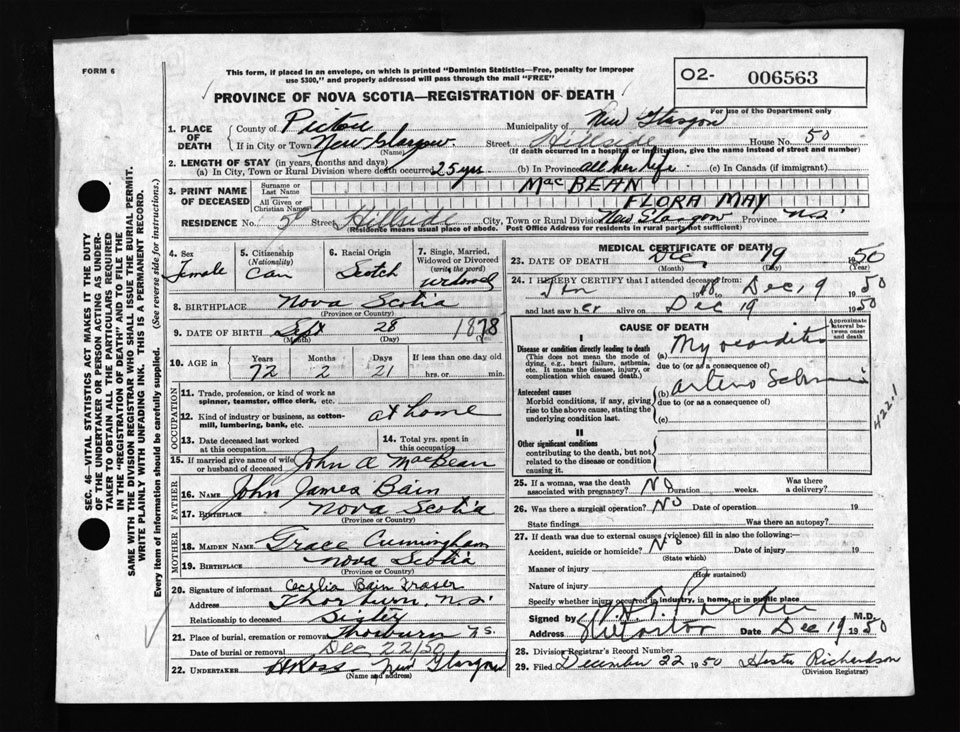 FORM 6
This form, if placed in an envelope, on which is printed "Dominion Statistics—Free, penalty for improper
use $300," and properly addressed will pass through the mail "FREE"
O2- 006563
PROVINCE OF NOVA SCOTIA—REGISTRATION OF DEATH
For use of the Department only
1. PLACE OF DEATH
County of Pictou Municipality of New Glasgow
If in City or Town New Glasgow. Street Hillside House No. 50
(Name) (If death occurred in a hospital or institution, give the name instead of street and number)
2. LENGTH OF STAY (in years, months and days)
(a) In City, Town or Rural Division where death occurred 25 yrs (b) In Province all her life (c) In Canada (if immigrant)
3. PRINT NAME OF DECEASED
Surname or Last Name MacBEAN
All Given or Christian Names FLORA MAY
RESIDENCE No. 50 Street Hillside City, Town or Rural Division New Glasgow Province N.S.
(Residence means usual place of abode. Post Office Address for residents in rural parts not sufficient)
4. Sex Female
5. Citizenship (Nationality) Can
6. Racial Origin Scotch
7. Single, Married, Widowed or Divorced (write the word) widowed
8. BIRTHPLACE Nova Scotia
(Province or Country)
9. DATE OF BIRTH Sept 28 1878
(Month) (Day)
10. AGE in Years Months Days If less than one day old
72 2 21 hrs. or min.
OCCUPATION
11. Trade, profession, or kind of work as spinner, teamster, office clerk, etc.
12. Kind of industry or business, as cotton-mill, lumbering, bank, etc. at home
13. Date deceased last worked at this occupation
14. Total yrs. spent in this occupation
15. If married give name of wife or husband of deceased John A MacBean
FATHER
16. NAME John James Bain
17. BIRTHPLACE Nova Scotia
(Province or Country)
MOTHER
18. MAIDEN NAME Grace Cunningham
19. BIRTHPLACE Nova Scotia
(Province or Country)
20. Signature of informant Cecelia Bain Fraser
Address Thorburn, N.S.
Relationship to deceased Sister
21. Place of burial, cremation or removal Thorburn N.S.
Date of burial or removal Dec 22/50
22. UNDERTAKER Ross New Glasgow
(Name and Address)
MEDICAL CERTIFICATE OF DEATH
23. DATE OF DEATH Dec 19 1950
(Month) (Day) (Year)
24. I HEREBY CERTIFY that I attended deceased from:
Jan to Dec 19 1950
and last saw her alive on Dec 19 1950
CAUSE OF DEATH
Approximate interval between onset and death
I
Disease or condition directly leading to death
(This does not mean the mode of dying, e.g., heart failure, asthenia, etc. It means the disease, injury, or complication which caused death.)
(a) Myocarditis
due to (or as a consequence of)
Antecedent causes
Morbid conditions, if any, giving rise to the above cause, stating the underlying condition last.
(b)
due to (or as a consequence of)
(c)
422.1
II
Other significant conditions
contributing to the death, but not related to the disease or condition causing it.
25. If a woman, was the death associated with pregnancy? No Duration weeks. Was there a delivery?
26. Was there a surgical operation? No Date of operation 19
State findings Was there an autopsy?
27. If death was due to external causes (violence) fill in also the following:
Accident, suicide or homicide? No Date of injury 19
(State which)
Manner of injury
(How sustained)
Nature of injury
Specify whether injury occurred in industry, in home, or in public place
Signed by M.D.
Address Dec 19 1950
28. Division Registrar's Record Number
29. Filed December 22 1950 Hester Richardson
(Division Registrar)
SEC. 46 - VITAL STATISTICS ACT MAKES IT THE DUTY
OF THE UNDERTAKER OR PERSON ACTING AS UNDER-
TAKER TO OBTAIN ALL THE PARTICULARS REQUIRED
IN THE "REGISTRATION OF DEATH" AND TO FILE THE
SAME WITH THE DIVISION REGISTRAR WHO SHALL ISSUE THE BURIAL PERMIT.
WRITE PLAINLY WITH UNFADING INK. THIS IS A PERMANENT RECORD.
Every item of information should be carefully supplied. (See reverse side for instructions.)